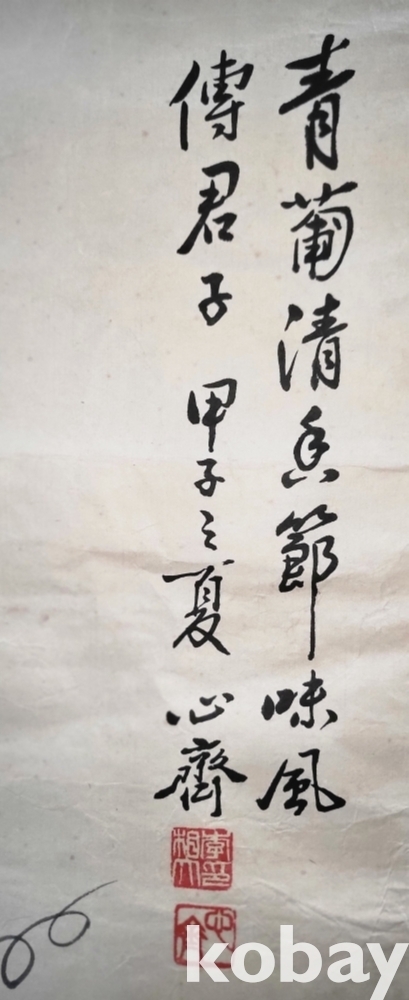 青葡清香節味風
傳君子 甲子之夏 心齊
kobay